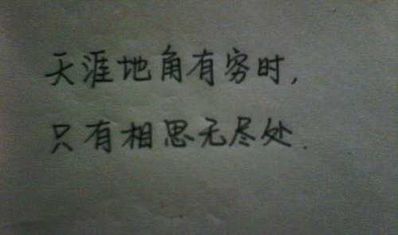 天涯地角有穷时,
只有相思无尽处.